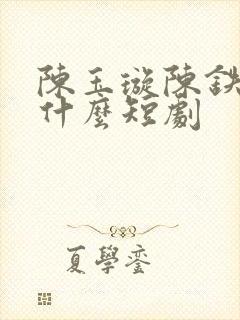 陳玉璇陳鉄
什麼短劇
夏學鑾